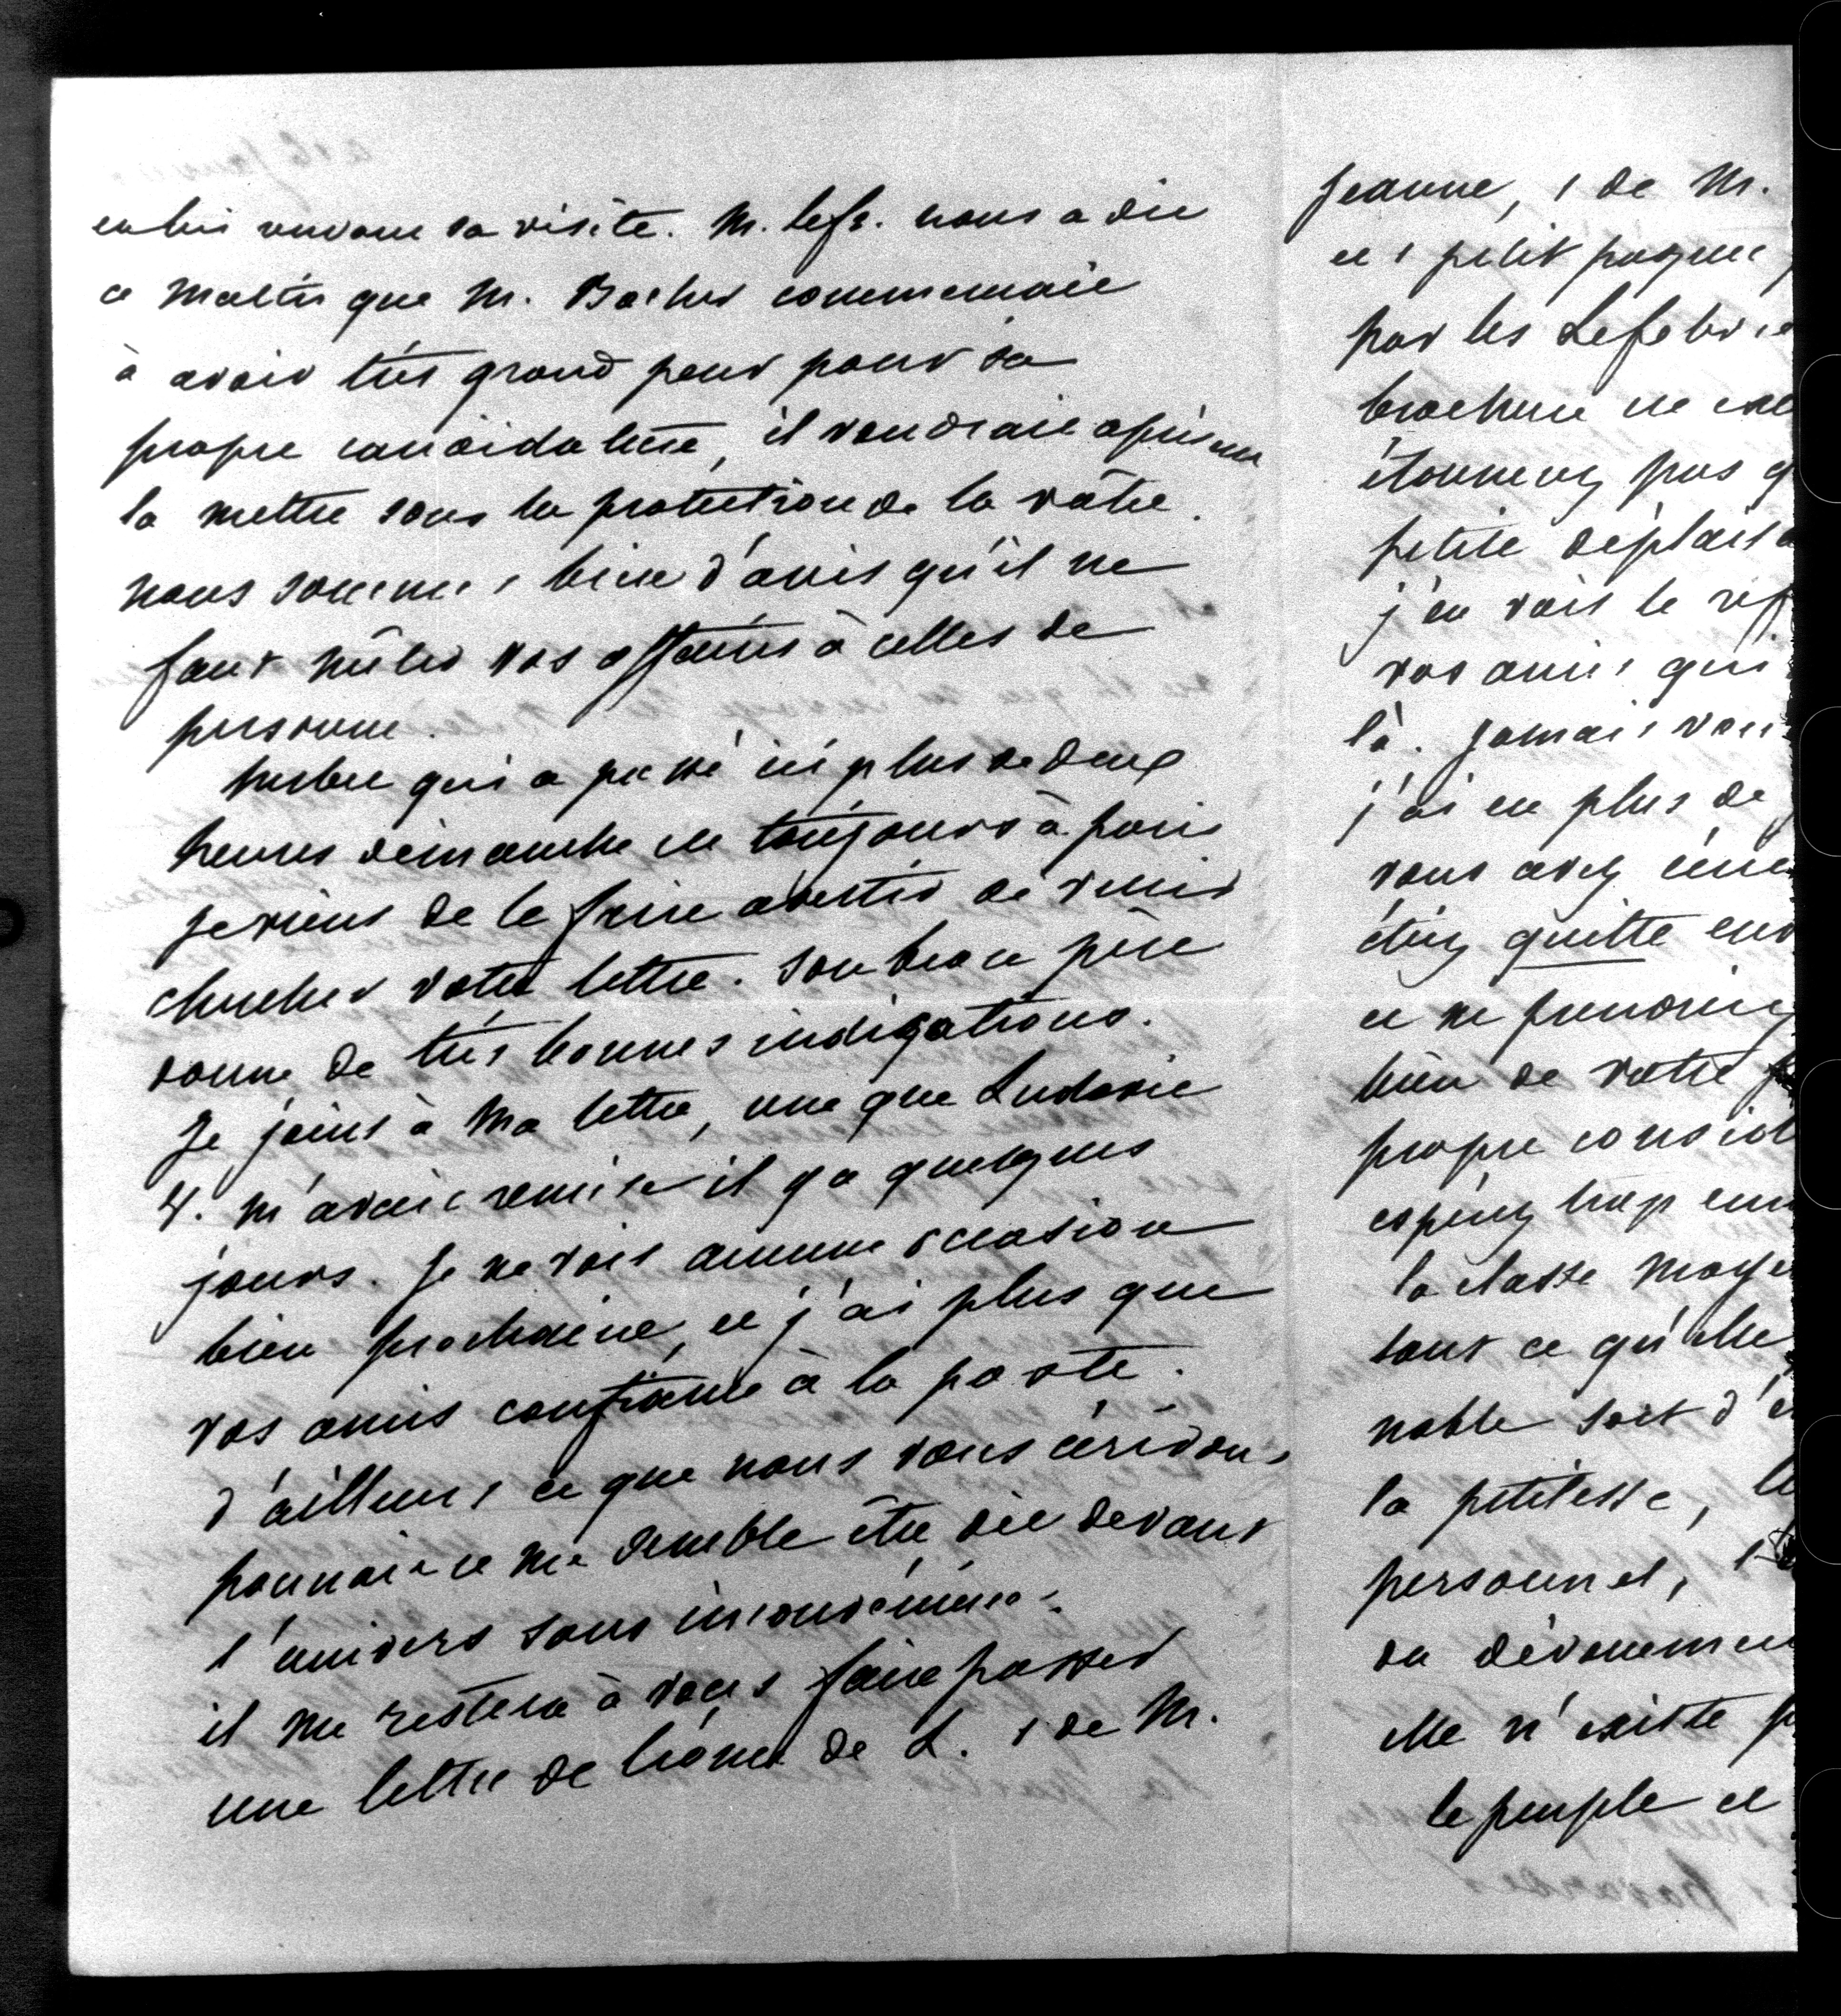 en lui rendant sa visite. M. Lefr. nous a dit
ce matin que M. commençait
à avoir très grand peur pour sa
propre candidature, il voudrait
la mettre sous la protection de la vôtre.
nous sommes bien d'avis qu'il ne
faut mêler vos affaires à celles de
personne.
qui a passé ici plus de deux
heures dimanche est toujours à Paris
je viens de le faire avertir de venir
chercher votre lettre. son beau père
donne de très bonnes indications.
Je joins à ma lettre, une que Ludovic
m'avait remise il y a quelques
jours. Je ne vois aucune occasion
bien prochaine, et j'ai plus que
vos amis confiance à la poste.
d'ailleurs ce que nous vous écrivons
pourrait ce me semble être dit devant
l'univers sans inconvénient.
il me restera à vous faire passer
une lettre de de L. 1 de M.
Jeanne, 1 de M.
et 1 petit paquet
par les Lefebvre
brochure ne
étonnez pas q
petite déplais
j'en vois le
vos amis qui
là. Jamais vou
j'ai eu plus de
vous avez
étiez quitte env
et ne prendriez
bien de votre
propre consid
espérez trop
la classe moye
tout ce qu'elle
noble soit d'
la petitesse,
personnel,
du dévouemen
elle n'existe p
le peuple et